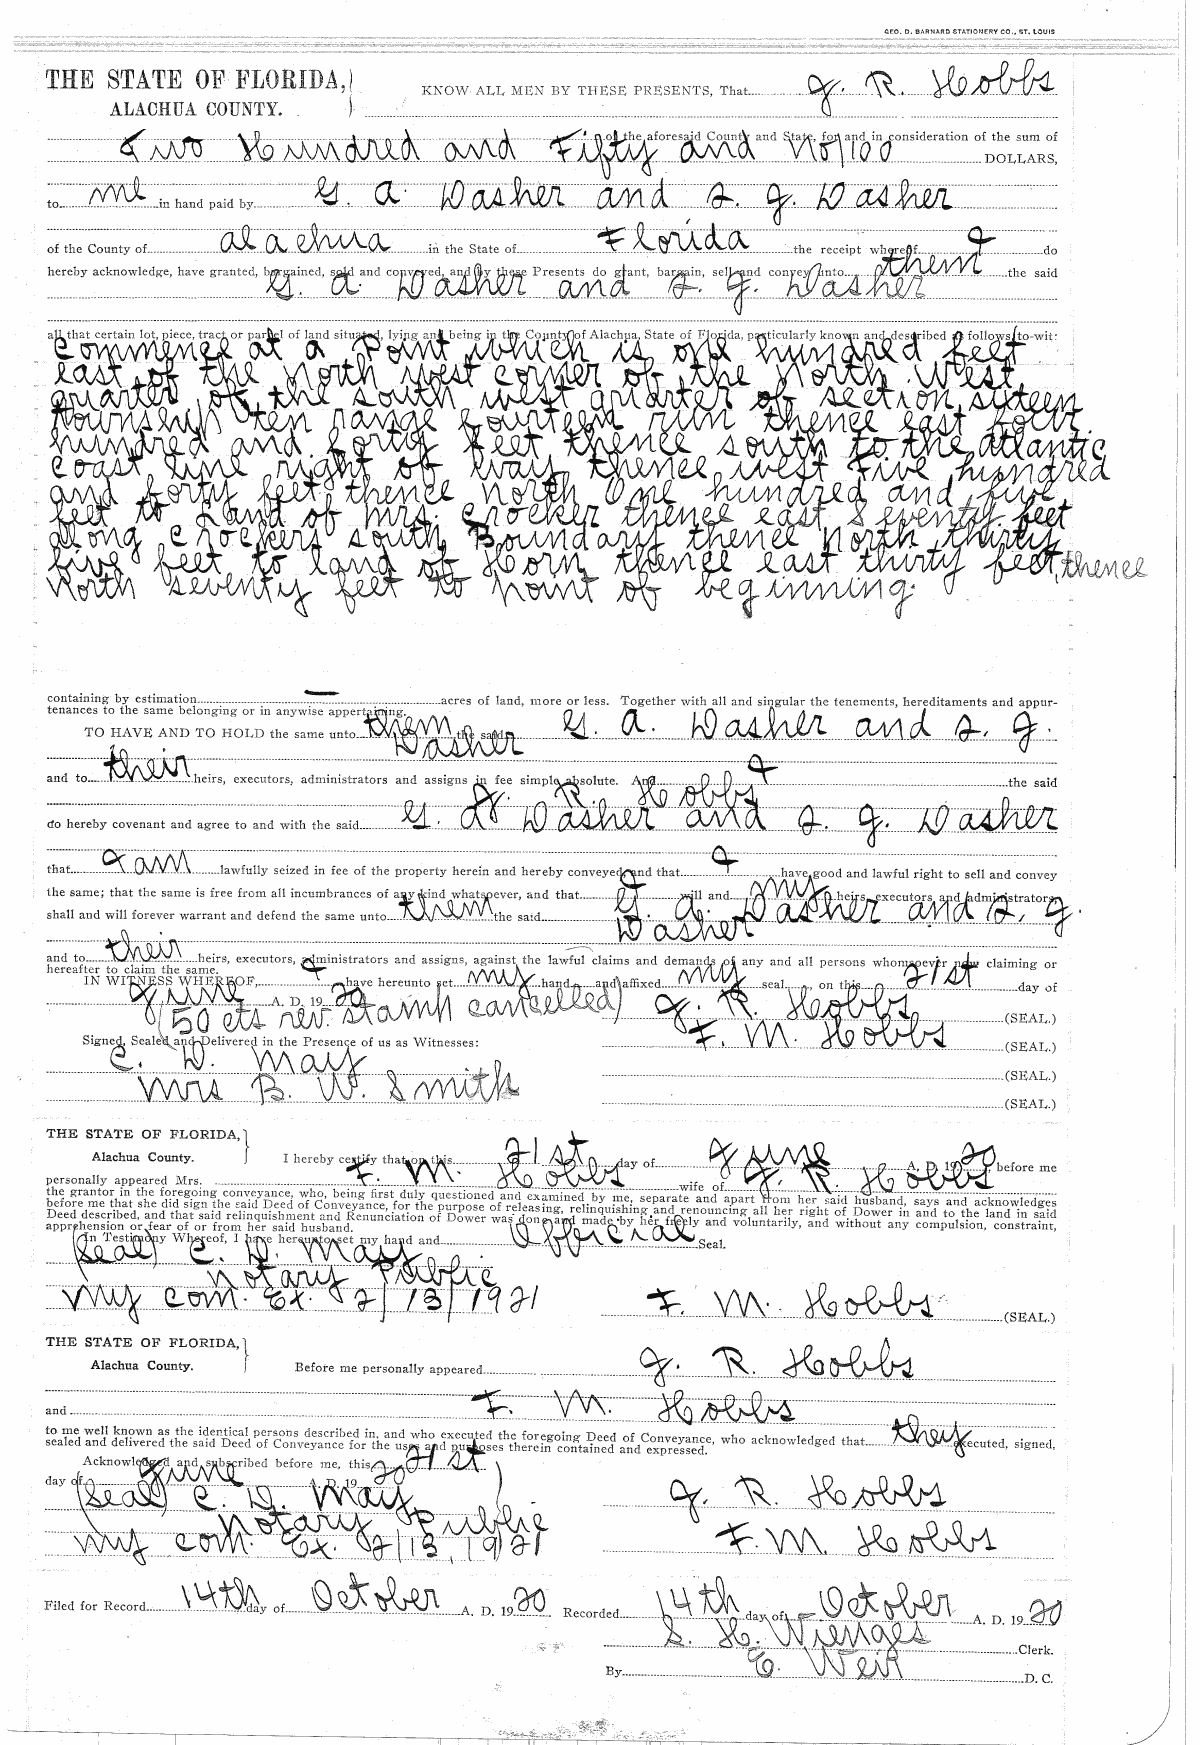 GEO. D. BARNARD STATIONERY CO., ST. LOUIS
THE STATE OF FLORIDA,
ALACHUA COUNTY.
KNOW ALL MEN BY THESE PRESENTS, That J. R. Hobbs
of the aforesaid County and State, for and in consideration of the sum of
Two Hundred and Fifty and No/100 DOLLARS,
to me in hand paid by G. A. Dasher and I. J. Dasher
of the County of Alachua in the State of Florida the receipt whereof I do
hereby acknowledge, have granted, bargained, sold and conveyed, and by these Presents do grant, bargain, sell and convey unto them the said
G. A. Dasher and I. J. Dasher
all that certain lot, piece, tract or parcel of land situated, lying and being in the County of Alachua, State of Florida, particularly known and described as follows, to-wit:
Commence at a Point which is one hundred feet
east of the North west corner of the North West
quarter of the south west quarter of section sixteen
Township ten range fourteen run thence east four
hundred and forty feet thence south to the Atlantic
Coast Line right of way thence west Five hundred
and forty feet, thence north One hundred and five
feet to Land of Mrs. Crocker thence east seventy feet
along Crockers south Boundary thence North thirty
five feet to land of Horn thence east thirty feet, thence
North seventy feet to point of beginning.
containing by estimation — acres of land, more or less. Together with all and singular the tenements, hereditaments and appur-
tenances to the same belonging or in anywise appertaining.
TO HAVE AND TO HOLD the same unto them the said G. A. Dasher and I. J.
Dasher
and to their heirs, executors, administrators and assigns in fee simple absolute. And I the said
J. R. Hobbs
do hereby covenant and agree to and with the said G. A. Dasher and I. J. Dasher
that I am lawfully seized in fee of the property herein and hereby conveyed and that I have good and lawful right to sell and convey
the same; that the same is free from all incumbrances of any kind whatsoever, and that I will and my heirs, executors and administrators
shall and will forever warrant and defend the same unto them the said G. A. Dasher and I. J.
Dasher
and to their heirs, executors, administrators and assigns, against the lawful claims and demands of any and all persons whomsoever now claiming or
hereafter to claim the same.
IN WITNESS WHEREOF, I have hereunto set my hand and affixed my seal, on this 21st day of
June A. D. 1920 J. R. Hobbs (SEAL.)
(50 cts rev. stamp cancelled) F. M. Hobbs (SEAL.)
Signed, Sealed and Delivered in the Presence of us as Witnesses:
C. D. May (SEAL.)
Mrs B. W. Smith (SEAL.)
THE STATE OF FLORIDA,
Alachua County.
I hereby certify that on this 21st day of June A. D. 1920, before me
personally appeared Mrs. F. M. Hobbs wife of J. R. Hobbs
the grantor in the foregoing conveyance, who, being first duly questioned and examined by me, separate and apart from her said husband, says and acknowledges
before me that she did sign the said Deed of Conveyance, for the purpose of releasing, relinquishing and renouncing all her right of Dower in and to the land in said
Deed described, and that said relinquishment and Renunciation of Dower was done and made by her freely and voluntarily, and without any compulsion, constraint,
apprehension or fear of or from her said husband.
In Testimony Whereof, I have hereunto set my hand and Official Seal.
(Seal) C. D. May
Notary Public
My com. Ex. 2/13/1921 F. M. Hobbs (SEAL.)
THE STATE OF FLORIDA,
Alachua County.
Before me personally appeared J. R. Hobbs
and F. M. Hobbs
to me well known as the identical persons described in, and who executed the foregoing Deed of Conveyance, who acknowledged that they executed, signed,
sealed and delivered the said Deed of Conveyance for the uses and purposes therein contained and expressed.
Acknowledged and subscribed before me, this 21st
day of June A. D. 1920
(Seal) C. D. May J. R. Hobbs
Notary Public
My com. Ex. 2/13, 1921 F. M. Hobbs
Filed for Record 14th day of October A. D. 1920 Recorded 14th day of October A. D. 1920
S. H. Wienges Clerk.
By E. Weir D. C.